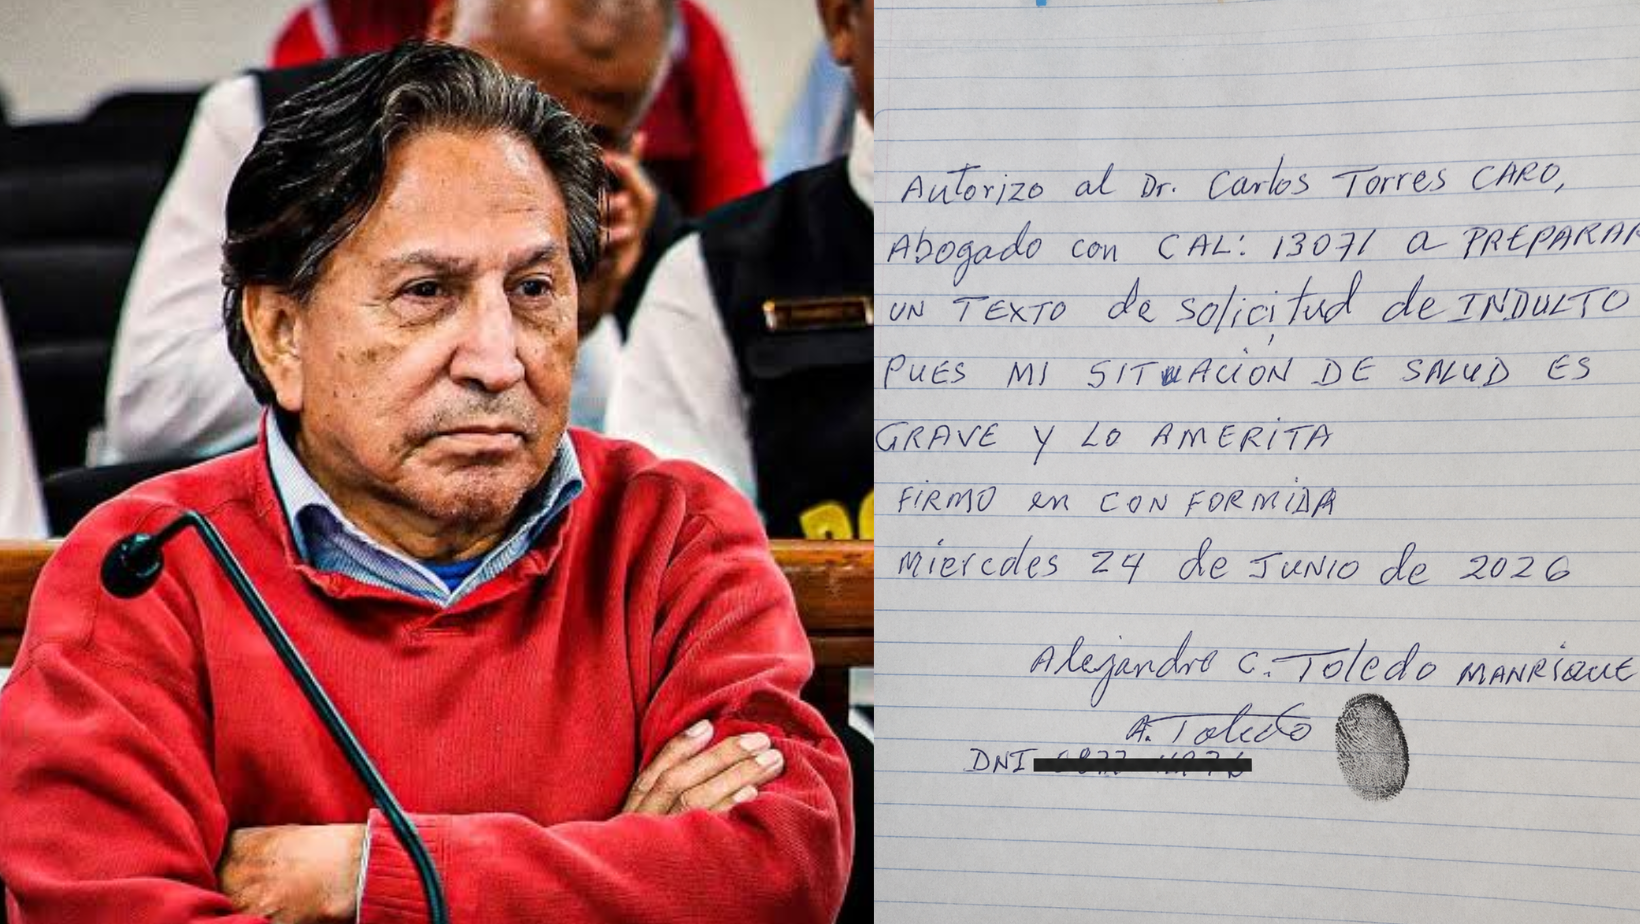 Autorizo al Dr. Carlos Torres CARO,
Abogado con CAL: 13071 a PREPARAR
UN TEXTO de solicitud de INDULTO
PUES MI SITUACIÓN DE SALUD ES
GRAVE Y LO AMERITA
FIRMO en CONFORMIDA
Miercoles 24 de JUNIO de 2026
Alejandro C. Toledo MANRIQUE
A. Toledo
DNI